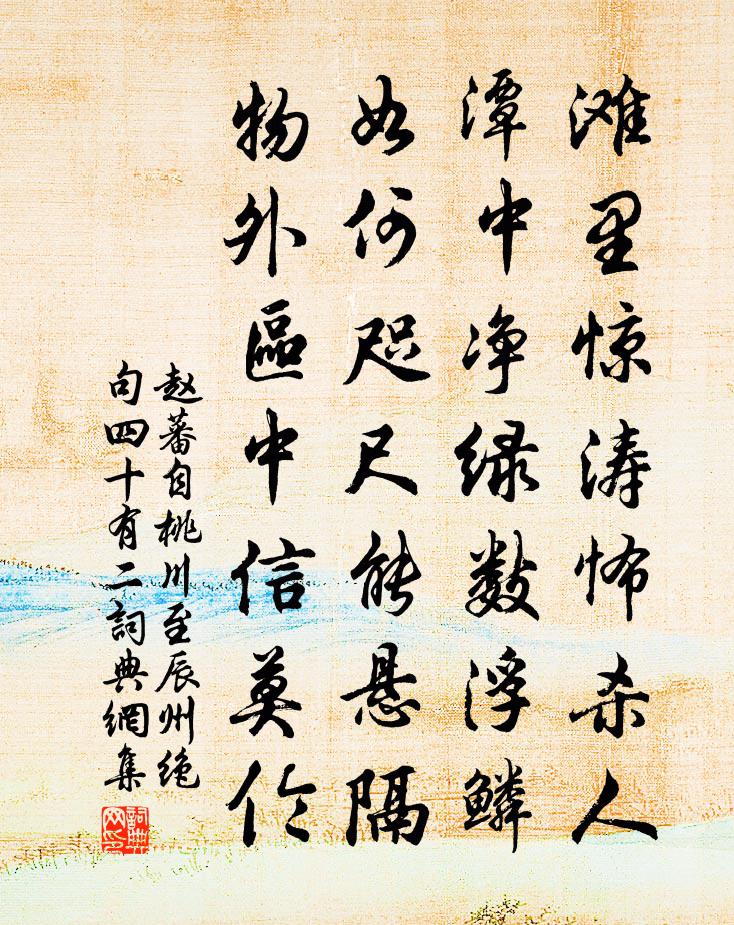 滩里惊涛怖杀人
潭中净绿数浮鳞
如何咫尺能悬隔
物外區中信莫伦
赵蕃自桃川至辰州绝
句四十有二詞典網集
詞典網印